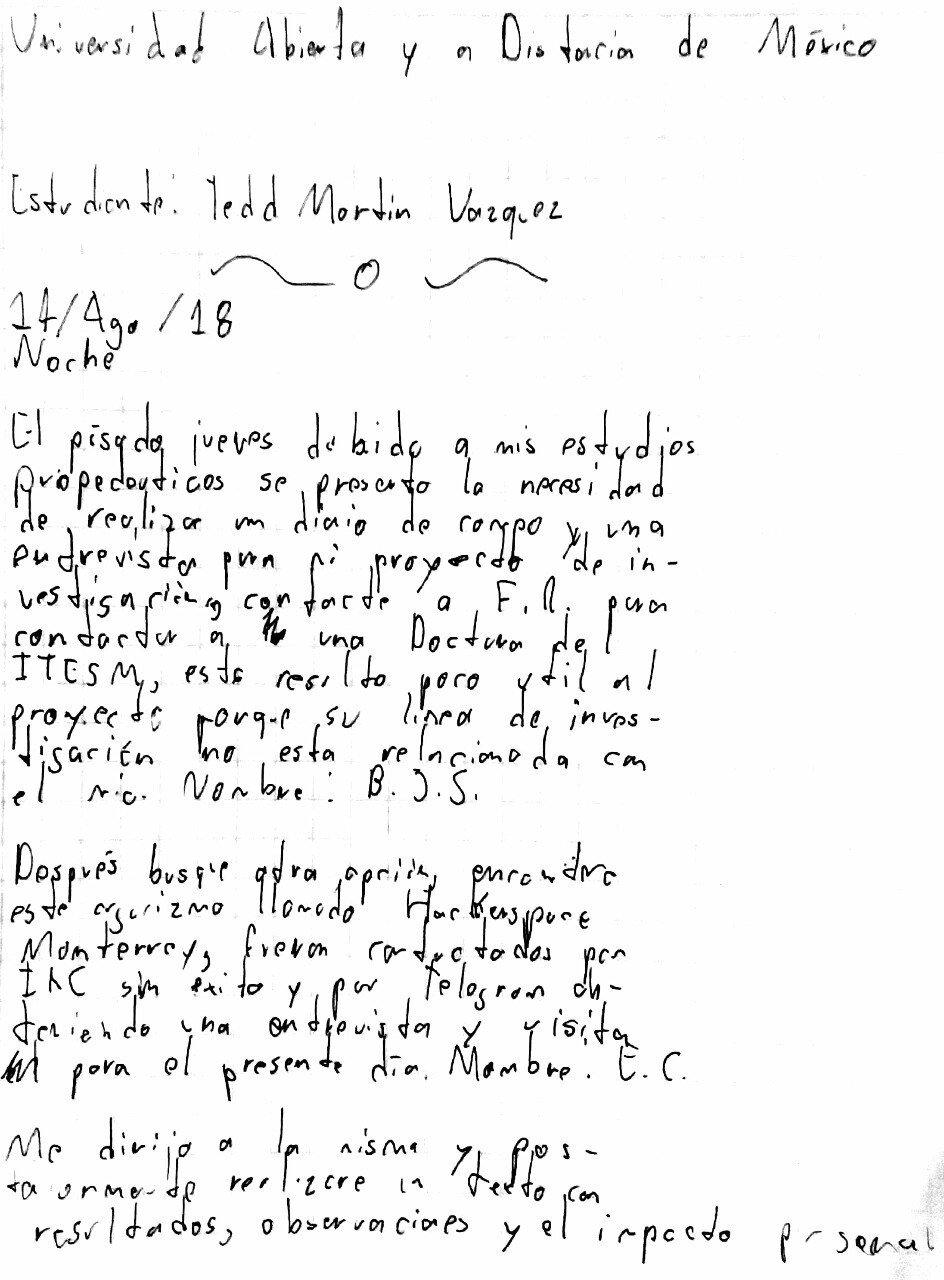 Universidad Abierta y a Distancia de México
Estudiante: Tedd Martin Vazquez
14/Ago/18
Noche
El pasado jueves debido a mis estudios
propedeuticos se presento la necesidad
de realizar un diaio de campo y una
entrevista para mi proyecto de in-
vestigación, contacte a F.R. para
contactar a una Doctora del
ITESM, esto resulto poco util al
proyecto porque su linea de inves-
tigación no esta relacionada con
el mio. Nombre: B.J.S.
Después busque otra opción, encontre
este organizmo llamado Hackerspace
Monterrey, fueron contactados por
IRC sin exito y por Telegram ob-
teniendo una entrevista y visita
para el presente día. Nombre. E.C.
Me dirijo a la misma y pos-
realizare un texto con
resultados, observaciones y el impacto personal